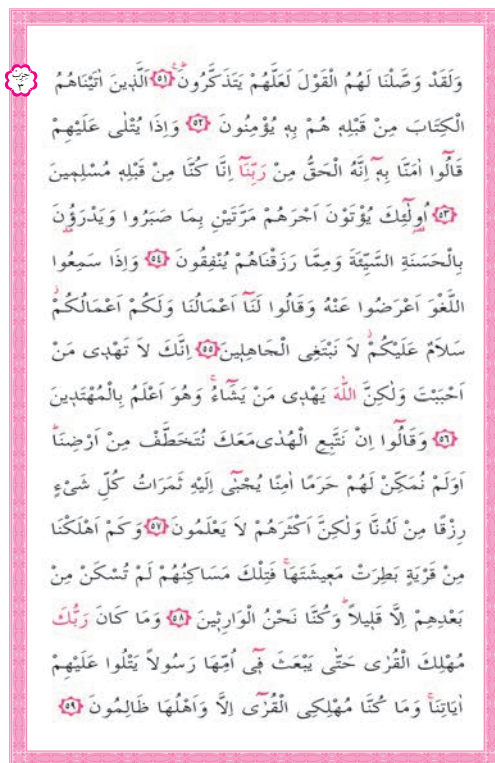 حزب
٣
وَلَقَدْ وَصَّلْنَا لَهُمُ الْقَوْلَ لَعَلَّهُمْ يَتَذَكَّرُونَۜ ﴿٥١﴾ اَلَّذ۪ينَ اٰتَيْنَاهُمُ
الْكِتَابَ مِنْ قَبْلِه۪ هُمْ بِه۪ يُؤْمِنُونَ ﴿٥٢﴾ وَاِذَا يُتْلٰى عَلَيْهِمْ
قَالُٓوا اٰمَنَّا بِه۪ٓ اِنَّهُ الْحَقُّ مِنْ رَبِّنَٓا اِنَّا كُنَّا مِنْ قَبْلِه۪ مُسْلِم۪ينَ
﴿٥٣﴾ اُو۬لٰٓئِكَ يُؤْتَوْنَ اَجْرَهُمْ مَرَّتَيْنِ بِمَا صَبَرُوا وَيَدْرَؤُ۫نَ
بِالْحَسَنَةِ السَّيِّئَةَ وَمِمَّا رَزَقْنَاهُمْ يُنْفِقُونَ ﴿٥٤﴾ وَاِذَا سَمِعُوا
اللَّغْوَ اَعْرَضُوا عَنْهُ وَقَالُوا لَنَٓا اَعْمَالُنَا وَلَكُمْ اَعْمَالُكُمْۘ
سَلَامٌ عَلَيْكُمْۘ لَا نَبْتَغِي الْجَاهِل۪ينَ ﴿٥٥﴾ اِنَّكَ لَا تَهْد۪ي مَنْ
اَحْبَبْتَ وَلٰكِنَّ اللّٰهَ يَهْد۪ي مَنْ يَشَٓاءُۚ وَهُوَ اَعْلَمُ بِالْمُهْتَد۪ينَ
﴿٥٦﴾ وَقَالُٓوا اِنْ نَتَّبِعِ الْهُدٰى مَعَكَ نُتَخَطَّفْ مِنْ اَرْضِنَاۜ
اَوَلَمْ نُمَكِّنْ لَهُمْ حَرَمًا اٰمِنًا يُجْبٰٓى اِلَيْهِ ثَمَرَاتُ كُلِّ شَيْءٍ
رِزْقًا مِنْ لَدُنَّا وَلٰكِنَّ اَكْثَرَهُمْ لَا يَعْلَمُونَ ﴿٥٧﴾ وَكَمْ اَهْلَكْنَا
مِنْ قَرْيَةٍ بَطِرَتْ مَع۪يشَتَهَاۚ فَتِلْكَ مَسَاكِنُهُمْ لَمْ تُسْكَنْ مِنْ
بَعْدِهِمْ اِلَّا قَل۪يلًاۜ وَكُنَّا نَحْنُ الْوَارِث۪ينَ ﴿٥٨﴾ وَمَا كَانَ رَبُّكَ
مُهْلِكَ الْقُرٰى حَتّٰى يَبْعَثَ ف۪ٓي اُمِّهَا رَسُولًا يَتْلُوا عَلَيْهِمْ
اٰيَاتِنَاۚ وَمَا كُنَّا مُهْلِكِي الْقُرٰٓى اِلَّا وَاَهْلُهَا ظَالِمُونَ ﴿٥٩﴾